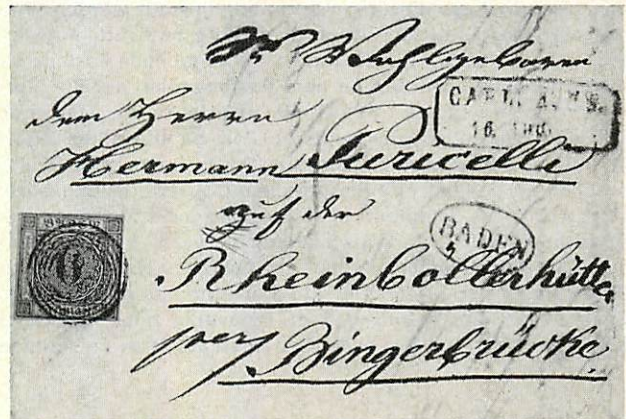 Sr Wohlgeboren
dem Herrn
Hermann Puricelli
auf der
Rheinböllerhütte
per Bingerbrücke
CARLSR
BADEN
6